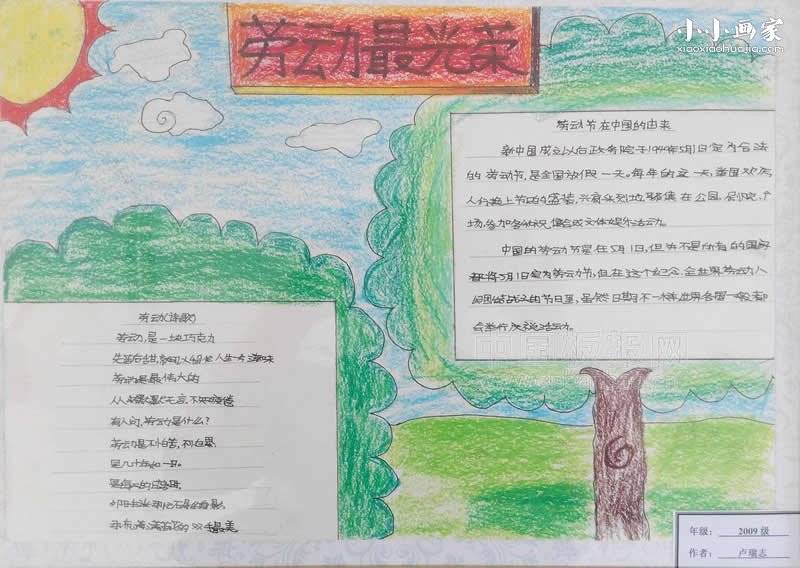 劳动最光荣
小小画家
xiaoxiaohuajia.com
劳动节在中国的由来
新中国成立以后政务院于1949年5月1日定为合法
的劳动节,是全国放假一天。每年的这一天,举国欢庆,
人们换上节日的盛装,兴高采烈地聚集在公园、剧院、广
场,参加各种庆祝集会或文体娱乐活动。
中国的劳动节是在5月1日,但并不是所有的国家
都将5月1日定为劳动节,但在这个纪念全世界劳动人
民团结战斗的节日里,虽然日期不一样,世界各国一般都
会举行庆祝活动。
劳动(诗歌)
劳动,是一块巧克力
先苦后甜,
人生
滋味
劳动是最伟大的
有人问,劳动是什么?
劳动是不怕苦,不怕累
是几十年如一日。
是
最美
中国板报网
年级: 2009 级
作者: 卢瑞志